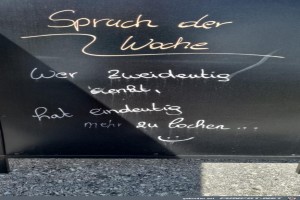 Spruch der
Woche
Wer Zweideutig
denkt,
hat eindeutig
mehr zu lachen...